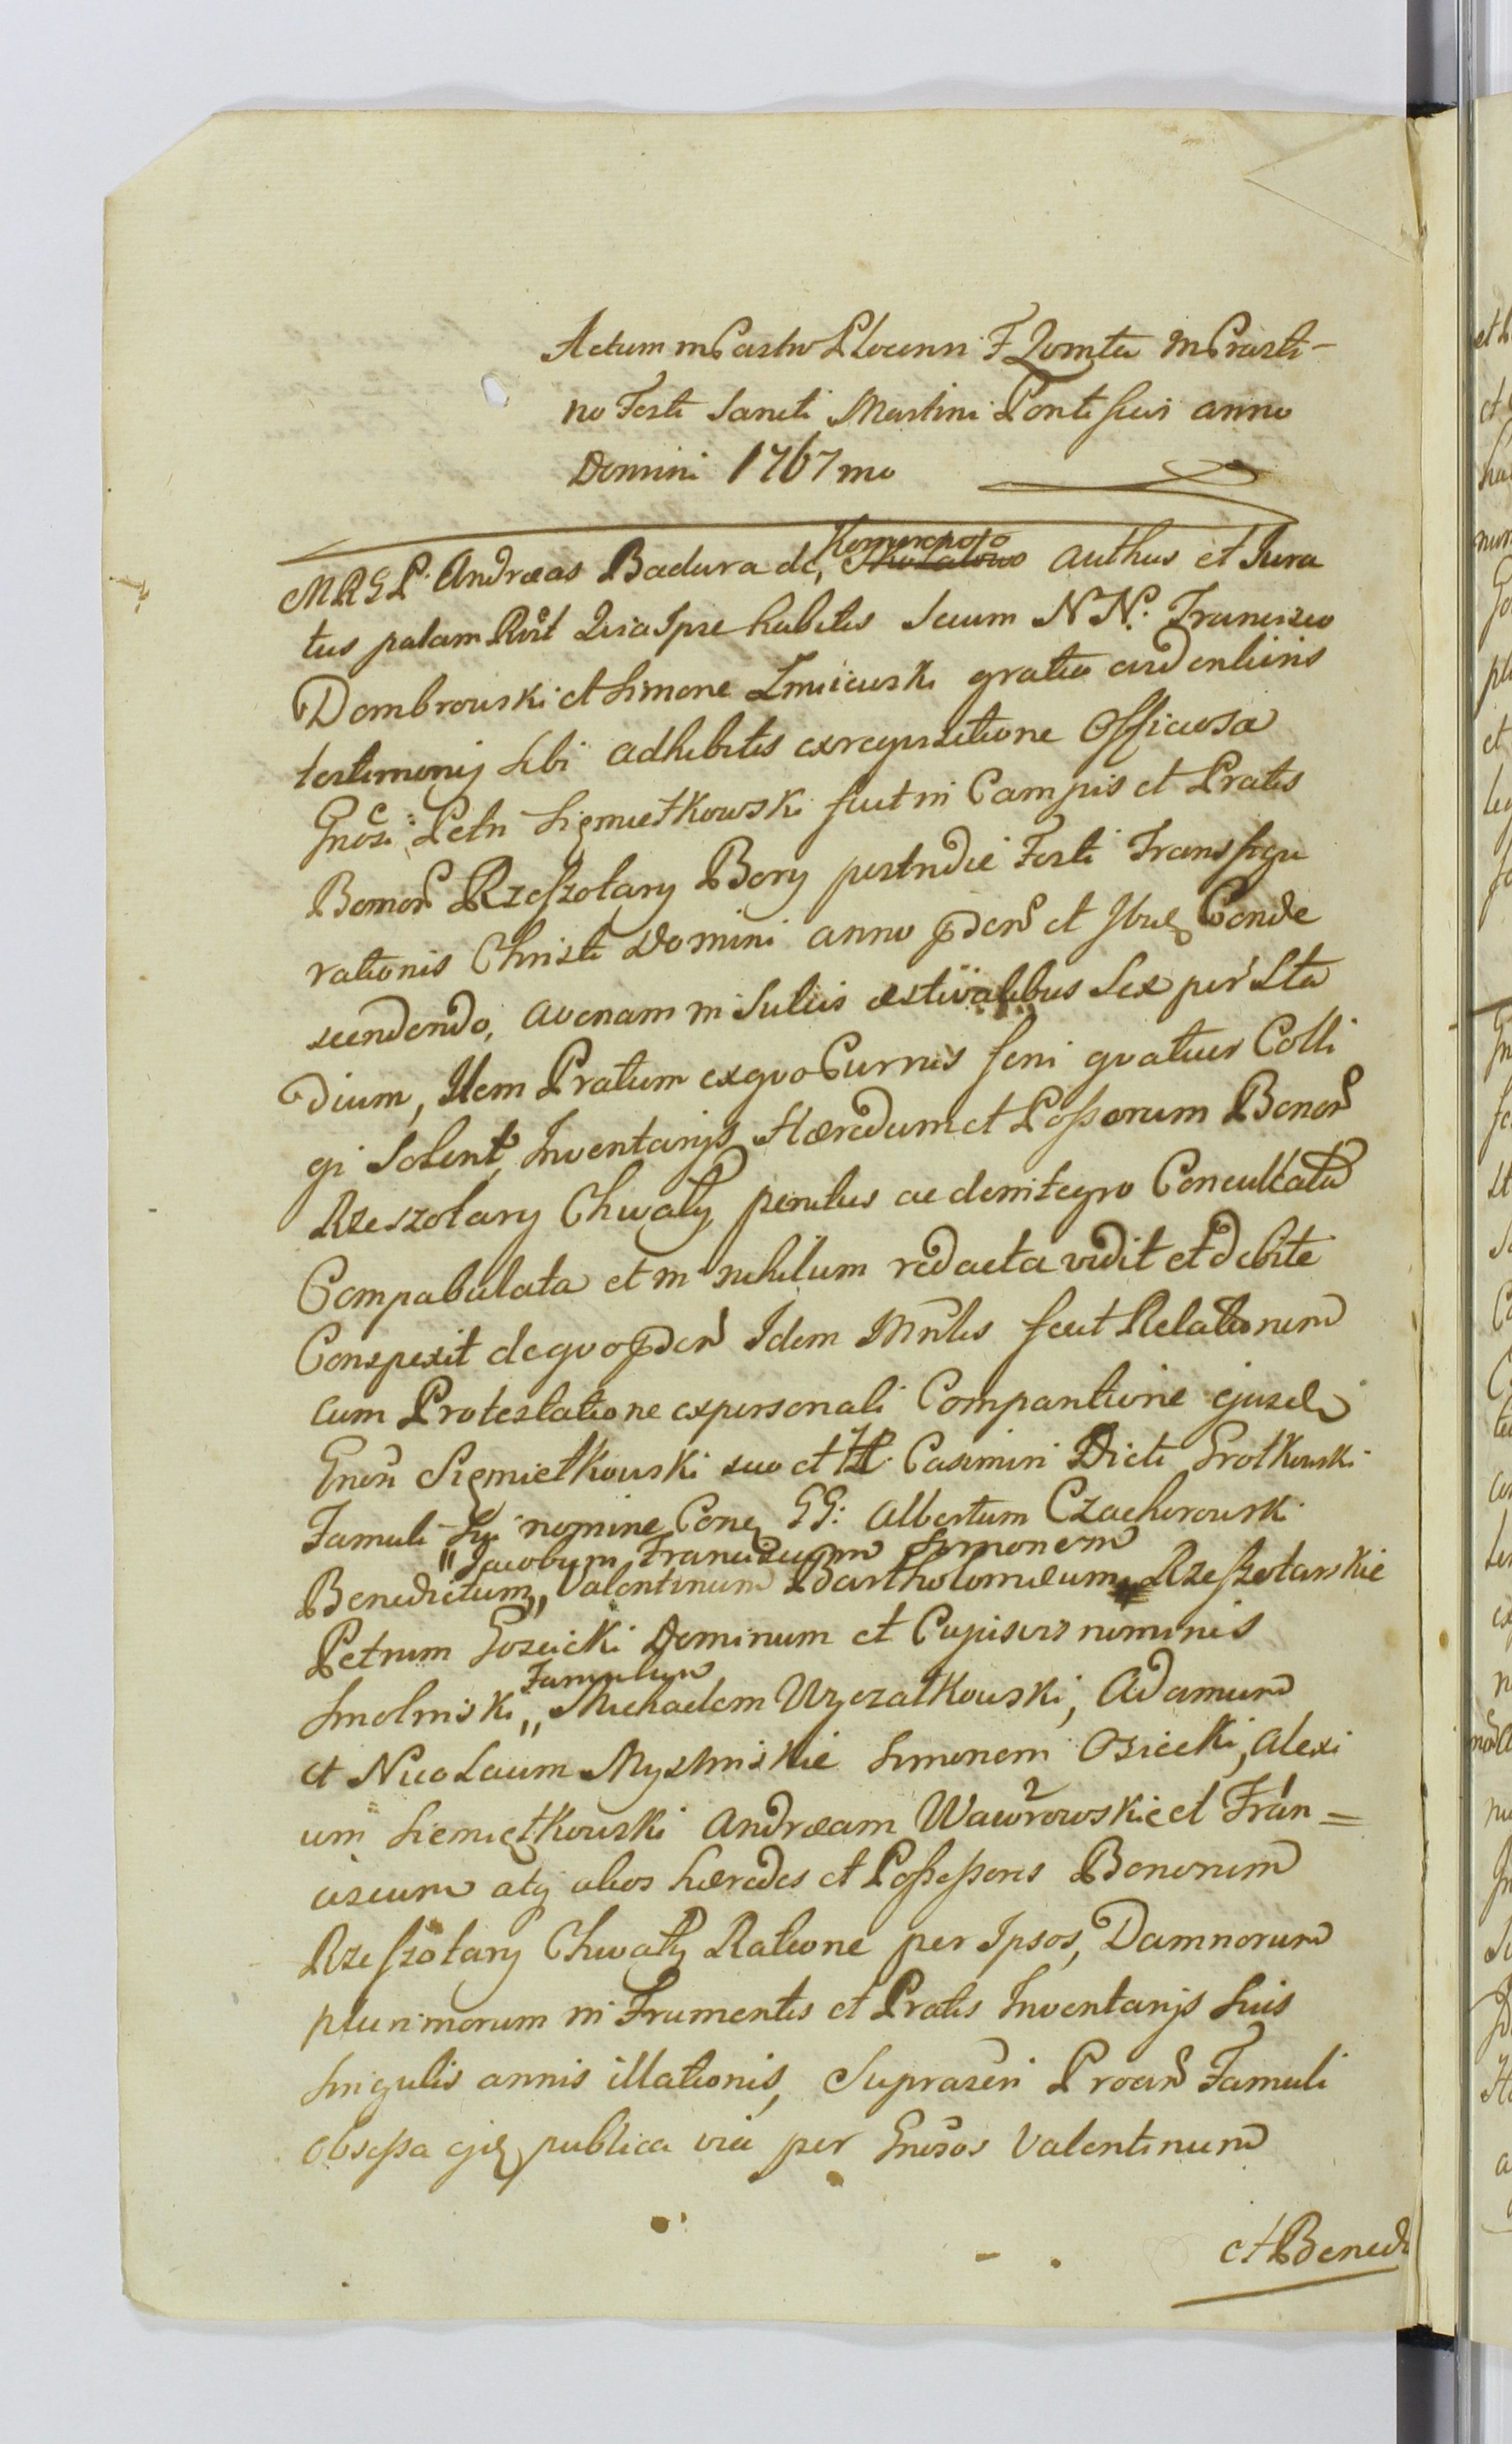 Actum in Castro Plocen F Quinta in Crasti-
no Festi Sancti Martini Pontificis anno
Domini 1767mo
Komorowo
MRGL Andræas Badura de, authus et Jura
tus palam Rvit Quia Ipse habitis Secum NN. Francisco
Dombrowski et Simone Zmiiewski gratia evidentioris
testimonij sibi adhibitis ex requisitione Officiosa
Gnosi Petri Siemiętkowski fuit in Campis et Pratis
Bonor Rzeszotary Bory postridie Festi Transfigu
rationis Christi Domini anno pden et Ibiq Conde
scendendo, avenam in Sulcis æstivalibus Sex per Sta
dium, Item Pratum ex quo Currus feni quatuor Colli
gi Solent, Inventarijs Hæredum et Possorum Bonor
Rzeszotary Chwały penitus ac deintegro Conculcata
Compabulata et in nihilum redacta vidit et debite
Conspexit de quo pden Idem Mnlis fecit Relationem
cum Protestatione ex personali Comparitione ejusd
Gnori Siemiętkowski suo et H. Casimiri Dicti Grotkowski
Famuli Sui nomine Conq GG: Albertum Czachorowski
"Jacobum, Franciscum Simonem
Benedictum,, Valentinum Bartholomæum Rzeszotarskie
Petrum Gozdicki Dominum et Cujusvis nominis
Famulum
Smolinski,, Michaelem Wyczałkowski, Adamum
et Nicolaum Myslinskie Simonem Osiecki, Alexi
um Siemiętkowski Andræam Wawrowskie et Fran=
2
ciscum atq alios hæredes et Possessores Bonorum
Rzeszotary Chwały Ratione per Ipsos, Damnorum
plurimorum in Frumentis et Pratis Inventarijs Suis
Singulis annis illationis, Suprascri Procun Famuli
Obsessa ejq publica via per Gnosos Valentinum
et Bened